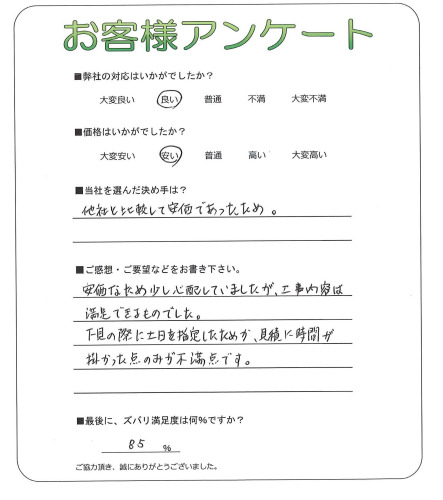 お客様アンケート
■弊社の対応はいかがでしたか?
大変良い 良い 普通 不満 大変不満
■価格はいかがでしたか?
大変安い 安い 普通 高い 大変高い
■当社を選んだ決め手は?
他社と比較して安価であったため。
■ご感想・ご要望などをお書き下さい。
安価なため少し心配していましたが、工事内容は
満足できるものでした。
下見の際に土日を指定したためか、見積に時間が
掛かった点のみが不満点です。
■最後に、ズバリ満足度は何%ですか?
85 %
ご協力頂き、誠にありがとうございました。